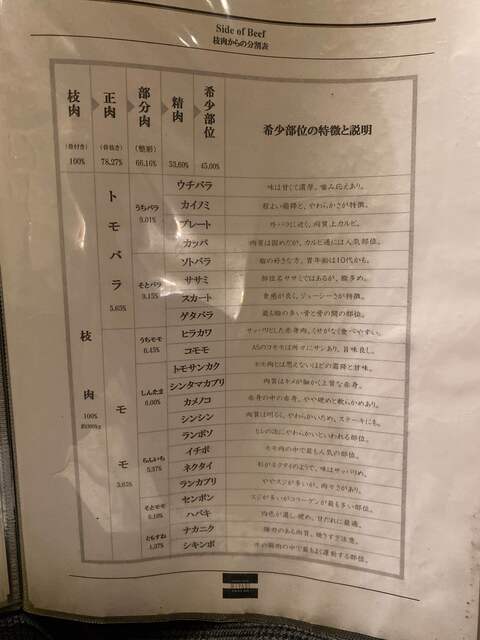 Side of Beef
枝肉からの分割表
枝肉 正肉 部分肉 精肉 希少部位 希少部位の特徴と説明
(骨付き) (骨抜き) (整形)
100% 78.27% 66.16% 33.60% 45.00%
枝肉
100%
トモバラ
5.65%
うちバラ
9.01%
ウチバラ 味は甘くて濃厚。噛み応えあり。
カイノミ 程よい霜降と、やわらかさが特徴。
プレート 外バラに近く、肉質上カルビ。
カッパ 肉質は固めだが、カルビ通には人気部位。
そとバラ
9.15%
ソトバラ 脂の好きな方。青年齢は10代かも。
ササミ 部位名ササミではあるが、脂多め。
スカート 食感が良く、ジューシーさが特徴。
ゲタバラ 最も脂の多い骨と骨の間の部位。
モモ
3.65%
うちモモ
6.45%
ヒラカワ サッパリとした赤身肉。くせがなく食べやすい。
コモモ A5のコモモは所々にサシあり、旨味良し。
しんたま
6.00%
トモサンカク モモ肉とは思えないほどの霜降と甘味。
シンタマカブリ 肉質はキメが細かく上質な赤身。
カメノコ 赤身の中の赤身。やや硬めと軟らかめあり。
シンシン 肉質は明るく、やわらかいため、ステーキにも。
らんいち
5.57%
ランボソ ヒレの次にやわらかいといわれる部位。
イチボ モモ肉の中で最も人気の部位。
ネクタイ 形がネクタイのようで、味はサッパリめ。
ランカブリ ややスジが多いが、肉々さがあり。
そとモモ
センボン スジが多いがコラーゲンが最も多い部位。
ハバキ 肉色が濃し硬め。甘だれに最適。
ともすね
1.57%
ナカニク 弾力のある肉質。焼りすぎ注意。
シキンボ 牛の筋肉の中で最もよく運動する部位。